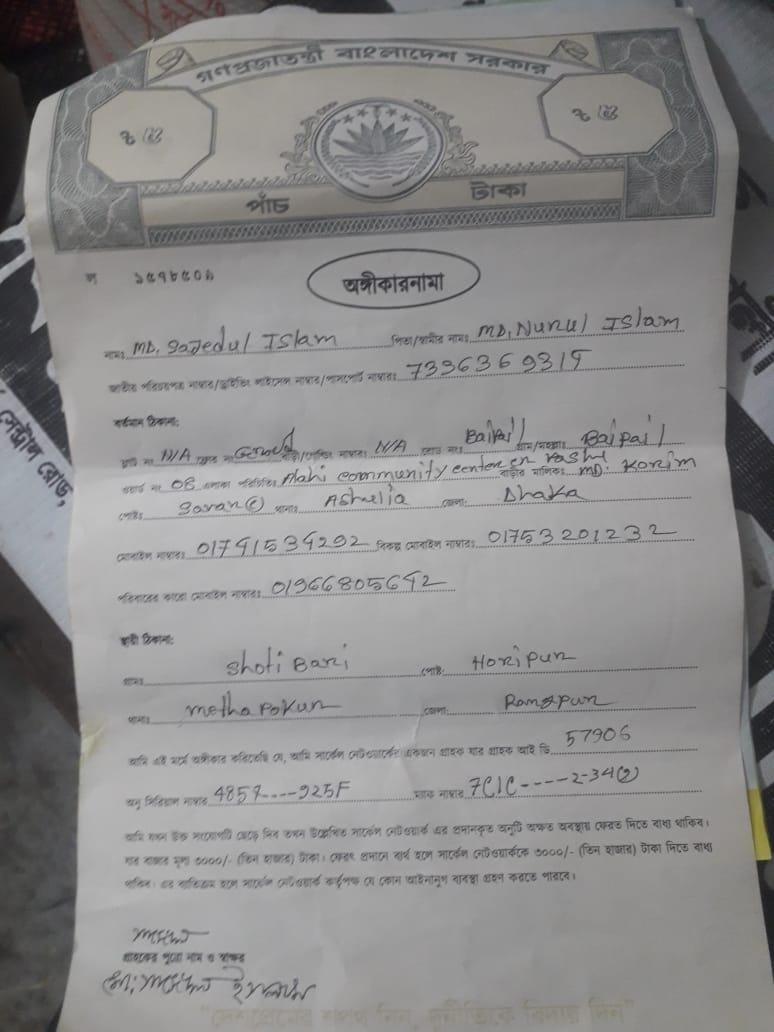 গণপ্রজাতন্ত্রী বাংলাদেশ সরকার
৳ ৫ ৳ ৫
পাঁচ টাকা
অঙ্গীকারনামা
নামঃ MD. Sajedul Islam পিতা/স্বামীর নামঃ MD. Nurul Islam
জাতীয় পরিচয়পত্র নাম্বার/ড্রাইভিং লাইসেন্স নাম্বার/পাসপোর্ট নাম্বারঃ 7336369315
বর্তমান ঠিকানা:
N/A N/A রোড নংঃ Baipail গ্রাম/মহল্লাঃ Baipail
ওয়ার্ড নং 08 এলাকা পরিচিতিঃ Alahi community center er বাড়ীর মালিকঃ MD. Korim
পোষ্টঃ Savar থানাঃ Ashulia জেলা: Dhaka
মোবাইল নাম্বারঃ 01741534292 বিকল্প মোবাইল নাম্বারঃ 01753201232
পরিবারের কারো মোবাইল নাম্বারঃ 01966805642
স্থায়ী ঠিকানা:
গ্রামঃ Shoti Bari পোষ্ট: Horipur
থানাঃ Metha Pokur জেলা: Rangpur
আমি এই মর্মে অঙ্গীকার করিতেছি যে, আমি সার্কেল নেটওয়ার্কের একজন গ্রাহক যার গ্রাহক আই ডি 57906
অনু সিরিয়াল নাম্বার 4857----925F ম্যাক নাম্বার 7C1C----2-34(2)
আমি যখন উক্ত সংযোগটি ছেড়ে দিব তখন উল্লেখিত সার্কেল নেটওয়ার্ক এর প্রদানকৃত অনুটি অক্ষত অবস্থায় ফেরত দিতে বাধ্য থাকিব।
যার বাজার মূল্য ৩০০০/- (তিন হাজার) টাকা। ফেরৎ প্রদানে ব্যর্থ হলে সার্কেল নেটওয়ার্ককে ৩০০০/- (তিন হাজার) টাকা দিতে বাধ্য
থাকিব। এর ব্যতিক্রম হলে সার্কেল নেটওয়ার্ক কর্তৃপক্ষ যে কোন আইনানুগ ব্যবস্থা গ্রহণ করতে পারবে।
গ্রাহকের পুরো নাম ও স্বাক্ষর
ইসলাম
"দেশপ্রেমের শপথ নিন, দুর্নীতিকে বিদায় দিন"